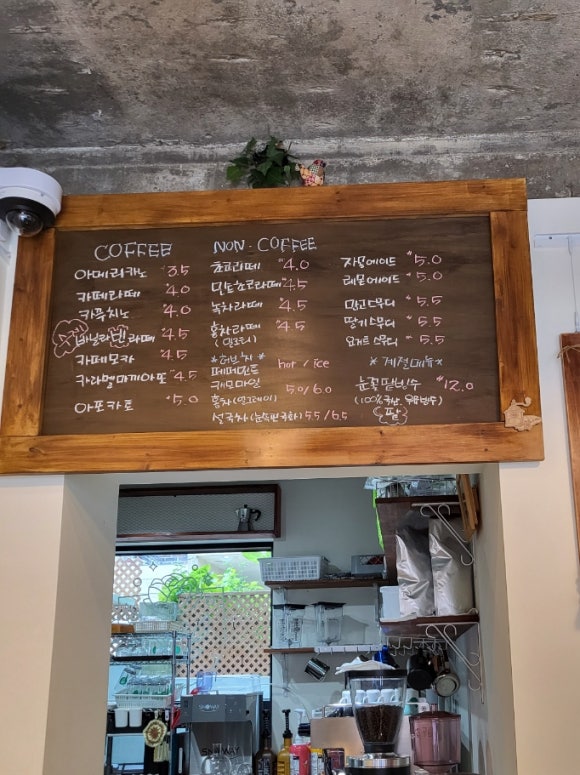 COFFEE
아메리카노 3.5
카페라떼 4.0
카푸치노 4.0
수제 바닐라빈라떼 4.5
카페모카 4.5
카라멜마끼아또 4.5
아포카토 5.0
NON-COFFEE
초코라떼 4.0
민트쵸코라떼 4.5
녹차라떼 4.5
홍차라떼 4.5
(밀크티)
*허브차* hot / ice
페퍼민트
캐모마일 5.0/6.0
홍차(얼그레이)
설국차(눈속에핀국화) 5.5/6.5
자몽에이드 5.0
레몬에이드 5.0
망고스무디 5.5
딸기스무디 5.5
요거트스무디 5.5
*계절메뉴*
눈꽃팥빙수 12.0
(100% 국산, 우유빙수)
팥
SNOWAY